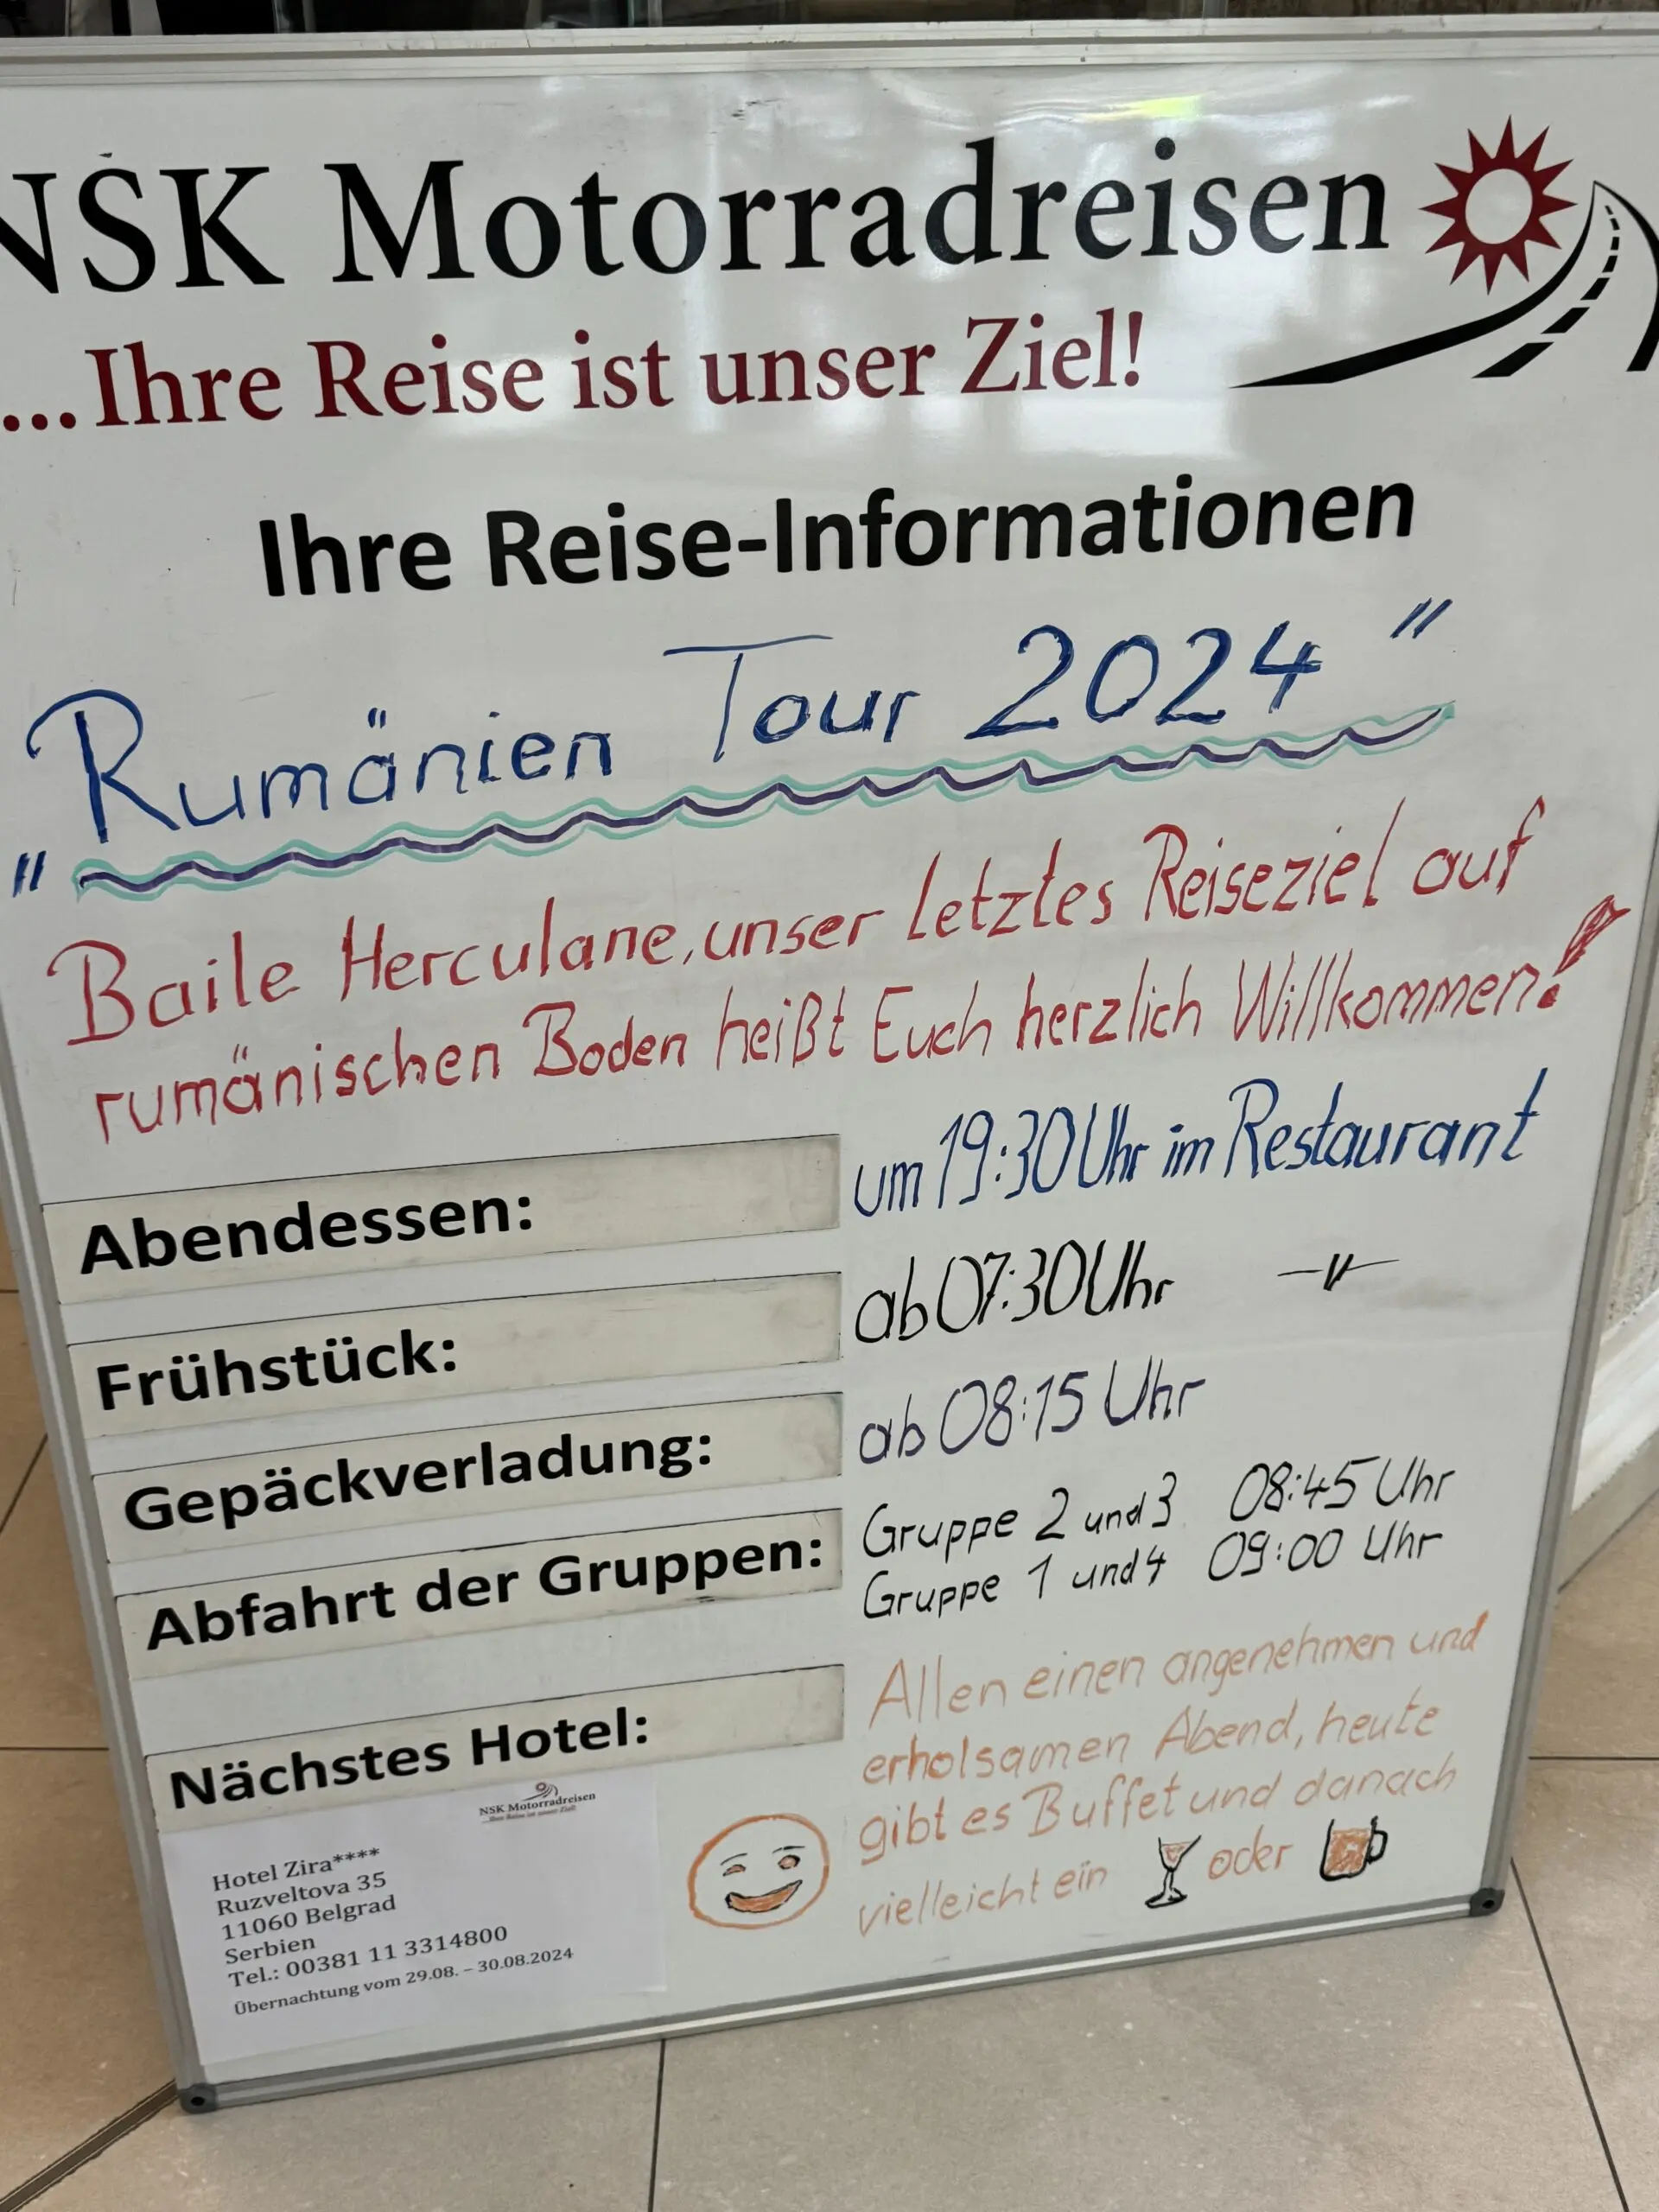 NSK Motorradreisen
...Ihre Reise ist unser Ziel!
Ihre Reise-Informationen
"Rumänien Tour 2024"
Baile Herculane, unser letztes Reiseziel auf
rumänischen Boden heißt Euch herzlich Willkommen!
Abendessen: um 19:30 Uhr im Restaurant
Frühstück: ab 07:30 Uhr —"—
Gepäckverladung: ab 08:15 Uhr
Abfahrt der Gruppen: Gruppe 2 und 3 08:45 Uhr
Gruppe 1 und 4 09:00 Uhr
Nächstes Hotel:
NSK Motorradreisen
...Ihre Reise ist unser Ziel!
Hotel Zira****
Ruzveltova 35
11060 Belgrad
Serbien
Tel.: 00381 11 3314800
Übernachtung vom 29.08. – 30.08.2024
Allen einen angenehmen und
erholsamen Abend, heute
gibt es Buffet und danach
vielleicht ein oder